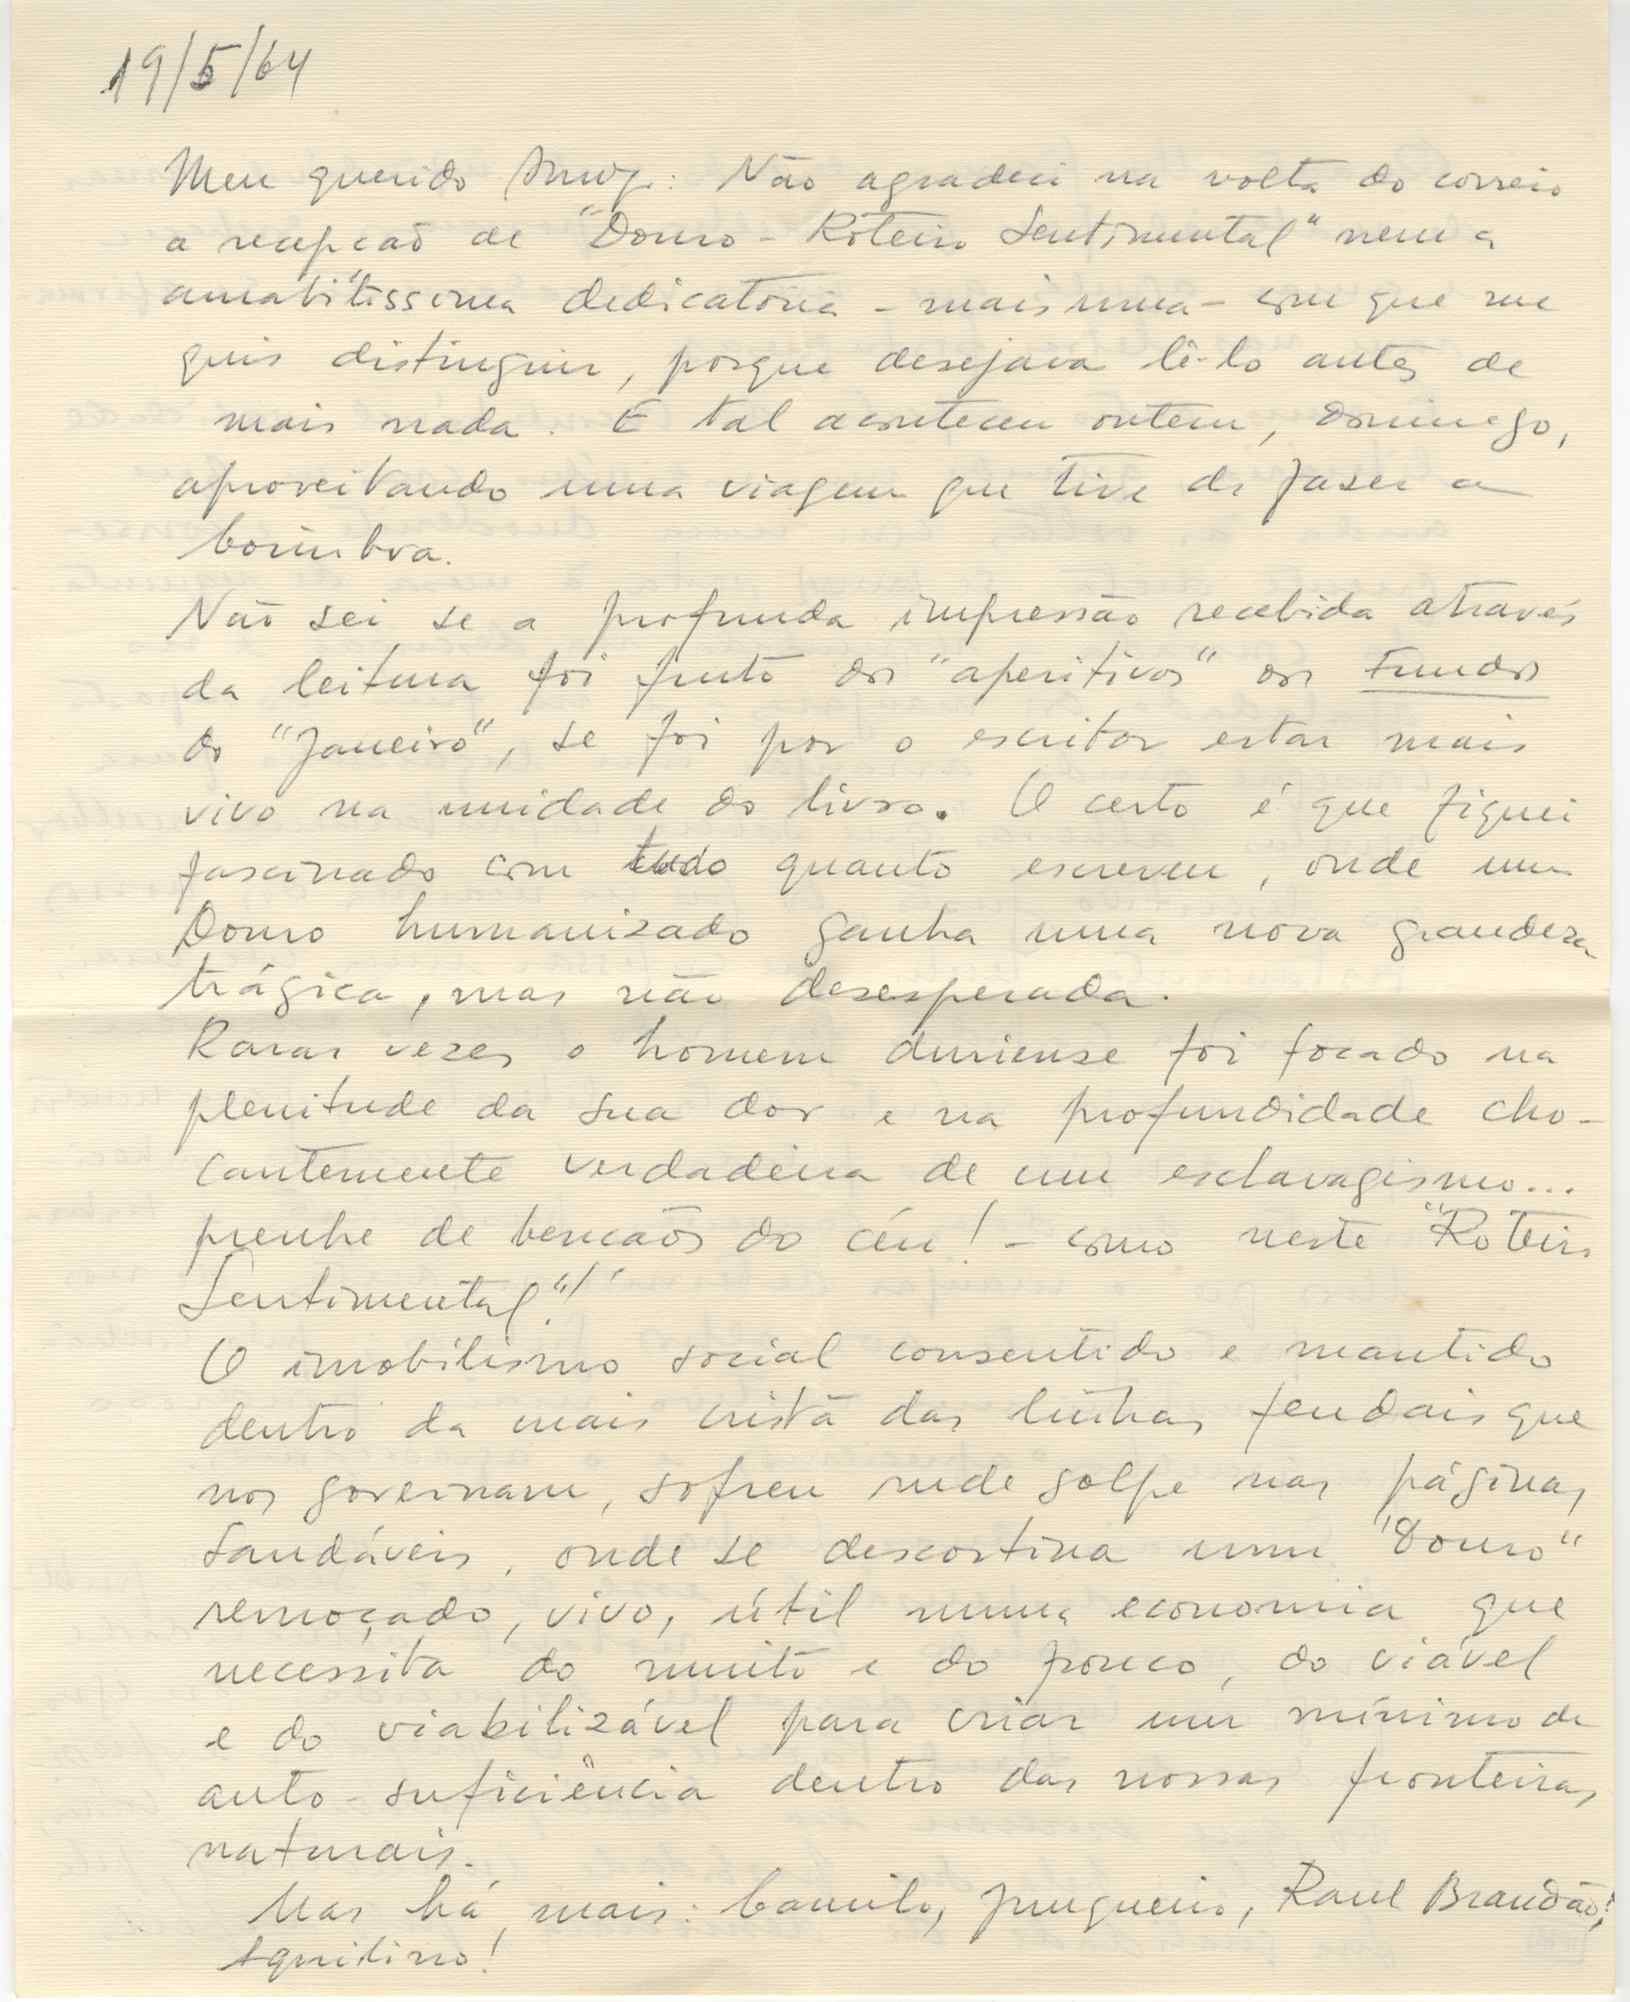 19/5/64
Meu querido Amigo: Não agradeci na volta do correio
a recepção de "Douro - Roteiro Sentimental" nem a
amabilíssima dedicatória - mais uma - com que me
quis distinguir, porque desejava lê-lo antes de
mais nada. E tal aconteceu ontem, domingo,
aproveitando uma viagem que tive de fazer a
Coimbra.
Não sei se a profunda impressão recebida através
da leitura foi fruto dos "aperitivos" dos Fundos
do "Janeiro", se foi por o escritor estar mais
vivo na unidade do livro. O certo é que fiquei
fascinado com tudo quanto escreveu, onde um
Douro humanizado ganha uma nova grandeza
trágica, mas não desesperada.
Raras vezes o homem duriense foi focado na
plenitude da sua dor e na profundidade cho-
cantemente verdadeira de um esclavagismo...
prenhe de bençãos do céu! - como neste "Roteiro
Sentimental"!
O imobilismo social consentido e mantido
dentro da mais cristã das linhas feudais que
nos governam, sofreu rude golpe nas páginas
saudáveis, onde se descortina um "Douro"
remoçado, vivo, útil numa economia que
necessita do muito e do pouco, do viável
e do viabilizável para criar um mínimo de
auto-suficiência dentro das nossas fronteiras
naturais.
Mas há mais: Camilo, Junqueiro, Raul Brandão,
Aquilino!